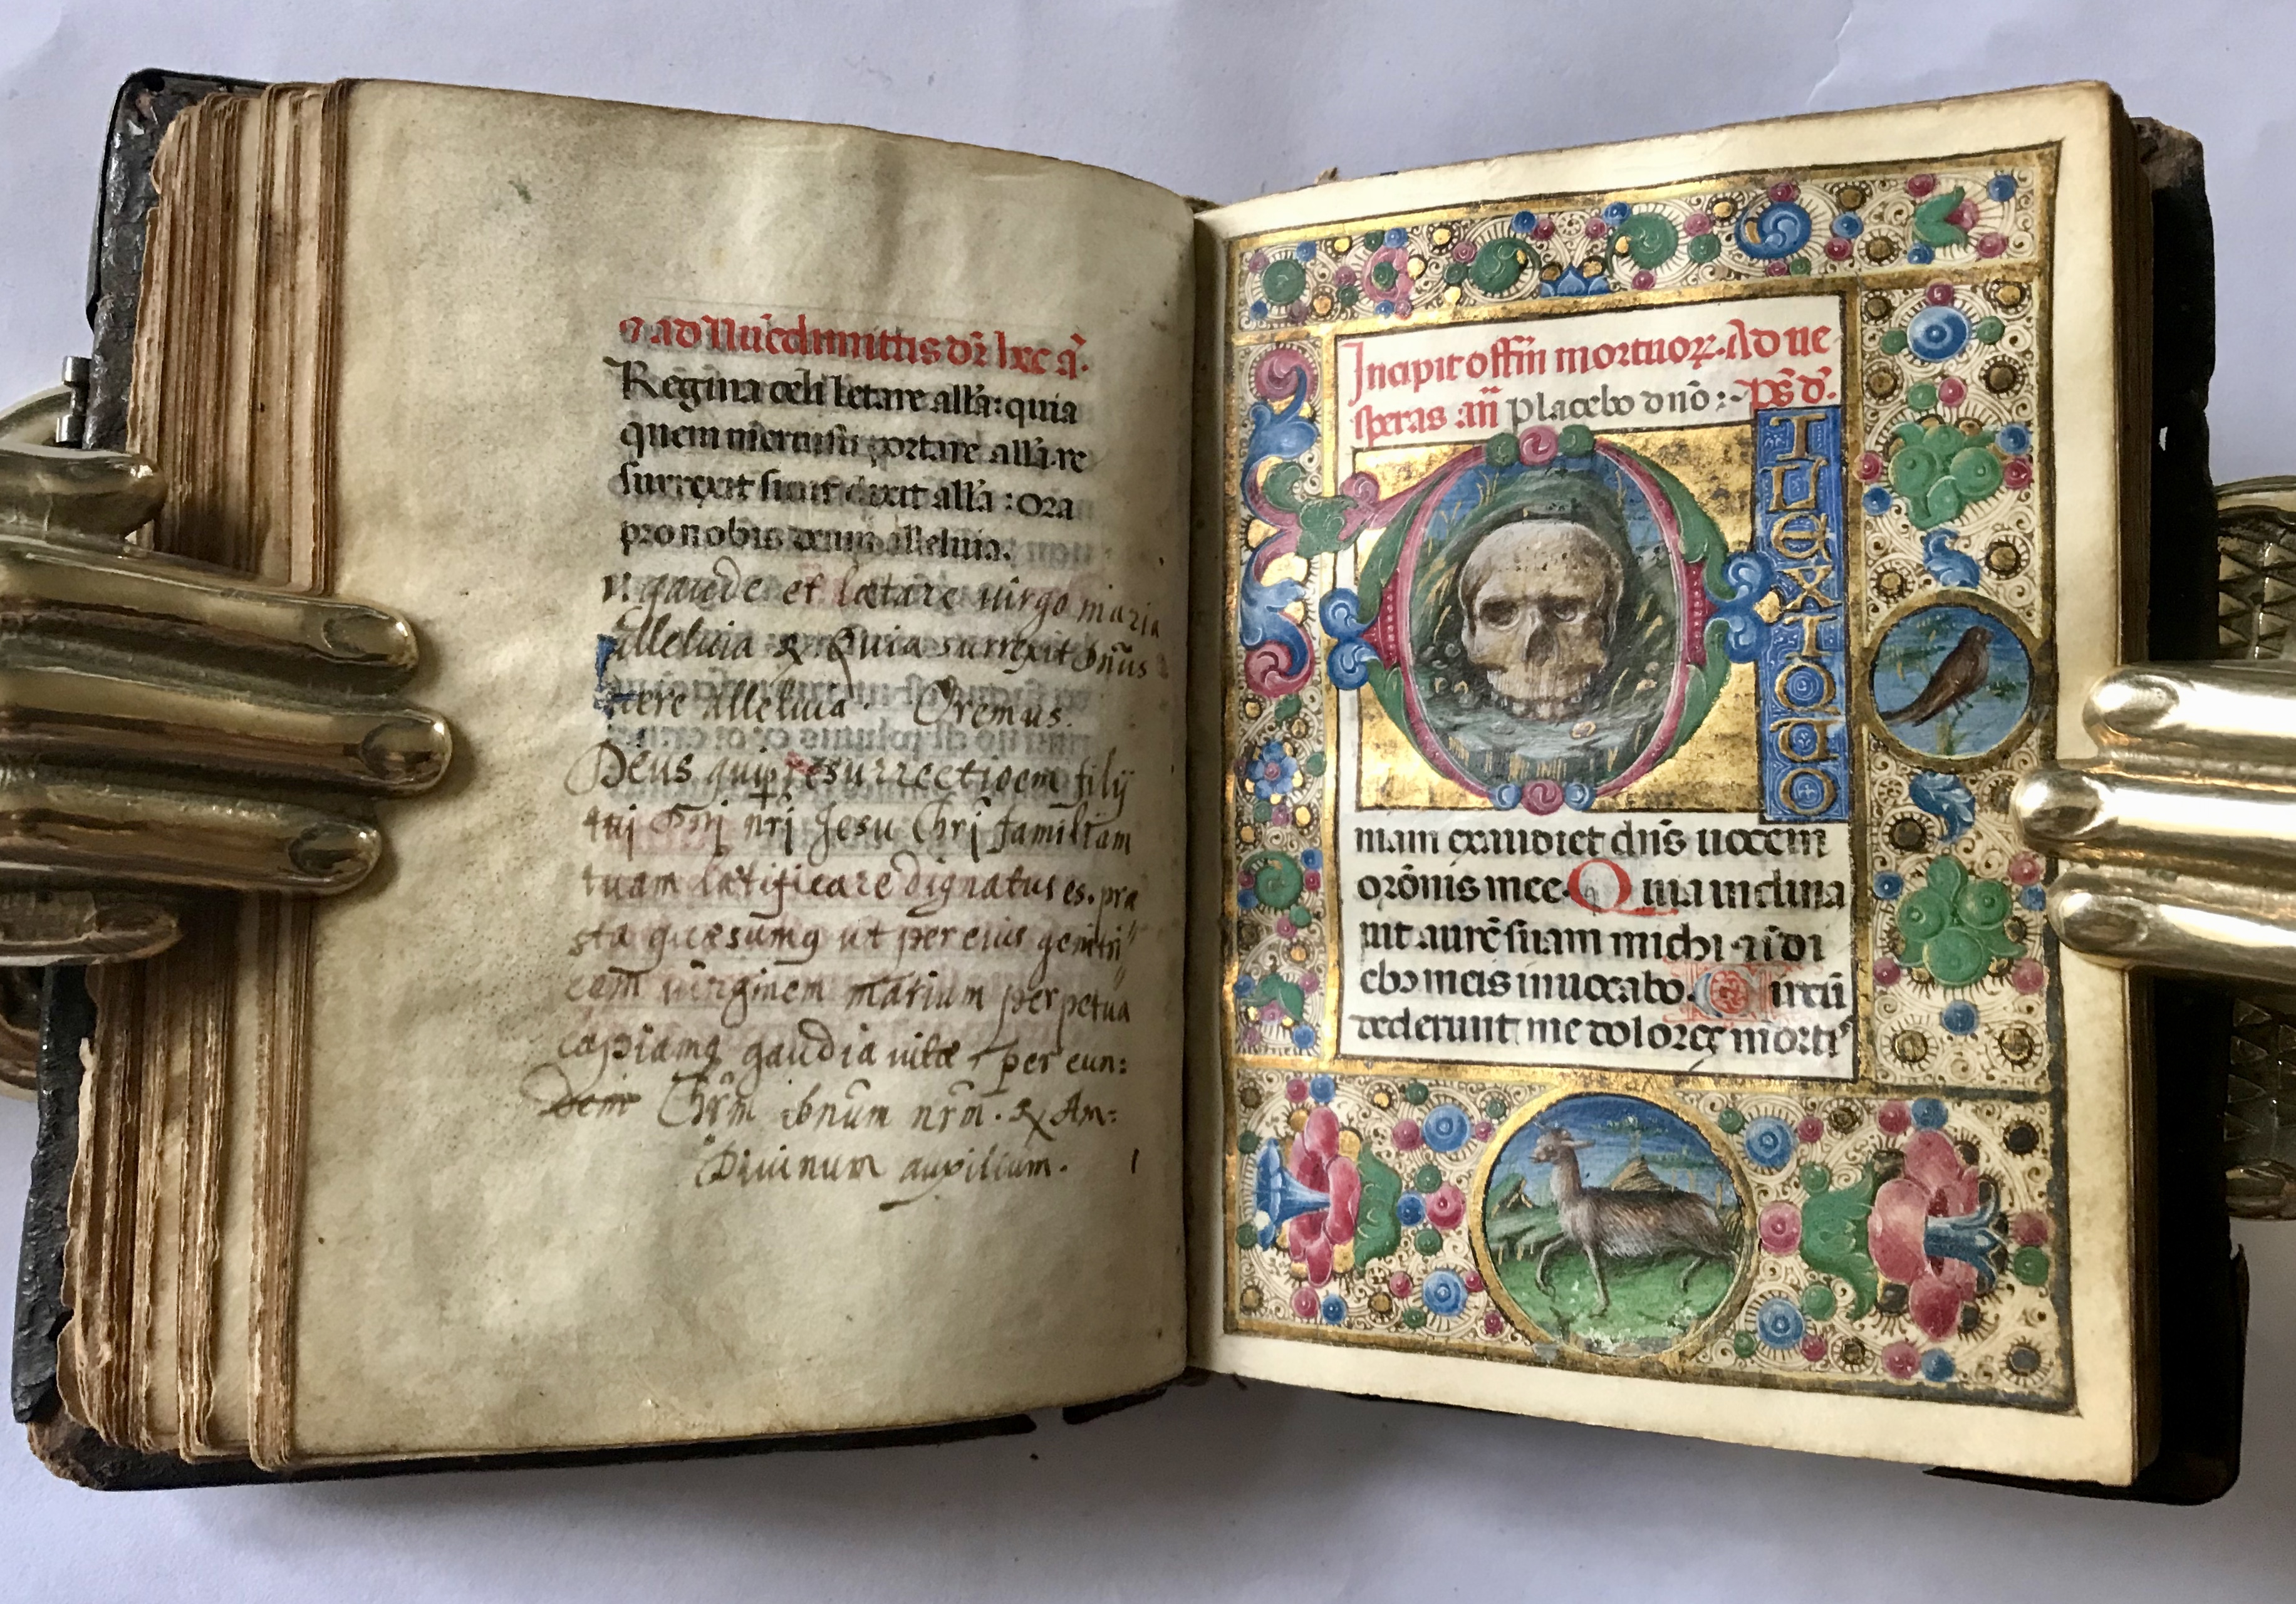 ⁊ ad Nūcdimittis dr̄ hec a̅.
Regina celi letare all'a: quia
quem meruisti portare all'a · re
surrexit sicut dixit all'a : ora
pro nobis deum alleluia.
V. gaude et lætare uirgo maria
Alleluia ℞. Quia surrexit Dñus
uere Alleluia · Oremus.
Deus qui ꝑ resurrectioem filij
tuj Dnj nrj Jesu Chrj familiam
tuam lætificare dignatus es. præ
sta quæsumꝰ ut per eius genitri
cem uirginem mariam perpetuæ
capiamꝰ gaudia uitæ per eun:
dem Chrm Dnūm nrm. ℞ Am:
Diuinum auxilium.
Incipit offm̄ mortuoꝝ. Ad ue
speras añ Placebo dnō :~ Ps̄ d̄.
D
ILEXI
QUO
niam exaudiet dn̄s uocem
orōnis mee. Quia inclina
uit aurē suam michi ⁊ ī di
ebus meis inuocabo. Circū
dederunt me dolores mortis